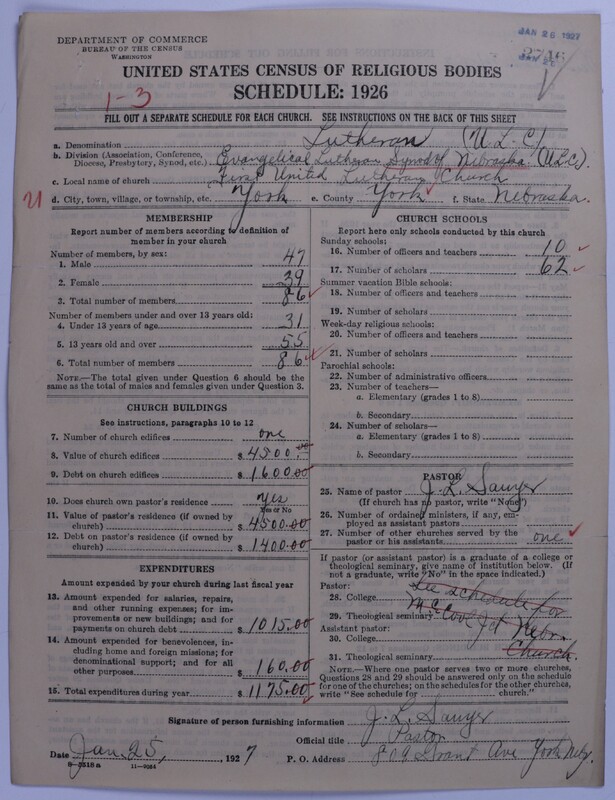 JAN 26 1927
DEPARTMENT OF COMMERCE
BUREAU OF THE CENSUS
WASHINGTON
UNITED STATES CENSUS OF RELIGIOUS BODIES
SCHEDULE: 1926
1-3
FILL OUT A SEPARATE SCHEDULE FOR EACH CHURCH. SEE INSTRUCTIONS ON THE BACK OF THIS SHEET
a. Denomination Lutheran (U.L.C)
b. Division (Association, Conference, Diocese, Presbytery, Synod, etc.) Evangelical Lutheran Synod of Nebraska (U.L.C.)
c. Local name of church First United Lutheran Church
d. City, town, village, or township, etc. York e. County York f. State Nebraska.
MEMBERSHIP
Report number of members according to definition of member in your church
Number of members, by sex:
1. Male 47
2. Female 39
3. Total number of members 86
Number of members under and over 13 years old:
4. Under 13 years of age 31
5. 13 years old and over 55
6. Total number of members 86
NOTE.—The total given under Question 6 should be the same as the total of males and females given under Question 3.
CHURCH BUILDINGS
See instructions, paragraphs 10 to 12
7. Number of church edifices one
8. Value of church edifices $ 4500.00
9. Debt on church edifices $ 1600.00
10. Does church own pastor's residence yes
Yes or No
11. Value of pastor's residence (if owned by church) $ 4500.00
12. Debt on pastor's residence (if owned by church) $ 1400.00
EXPENDITURES
Amount expended by your church during last fiscal year
13. Amount expended for salaries, repairs, and other running expenses; for improvements or new buildings; and for payments on church debt $ 1015.00
14. Amount expended for benevolences, including home and foreign missions; for denominational support; and for all other purposes $ 160.00
15. Total expenditures during year $ 1175.00
CHURCH SCHOOLS
Report here only schools conducted by this church
Sunday schools:
16. Number of officers and teachers 10
17. Number of scholars 62
Summer vacation Bible schools:
18. Number of officers and teachers
19. Number of scholars
Week-day religious schools:
20. Number of officers and teachers
21. Number of scholars
Parochial schools:
22. Number of administrative officers
23. Number of teachers—
a. Elementary (grades 1 to 8)
b. Secondary
24. Number of scholars—
a. Elementary (grades 1 to 8)
b. Secondary
PASTOR
25. Name of pastor J. L. Sawyer
(If church has no pastor, write "None")
26. Number of ordained ministers, if any, employed as assistant pastors
27. Number of other churches served by the pastor or his assistants one
If pastor (or assistant pastor) is a graduate of a college or theological seminary, give name of institution below. (If not a graduate, write "No" in the space indicated.)
Pastor:
28. College See schedule for
29. Theological seminary McCool Jct Nebr.
Assistant pastor:
30. College
31. Theological seminary Church.
NOTE.—Where one pastor serves two or more churches, Questions 28 and 29 should be answered only on the schedule for one of the churches; on the schedules for the other churches, write "See schedule for ______ church."
Signature of person furnishing information J. L. Sawyer
Official title Pastor
Date Jan. 25, 1927 P. O. Address 809 Grant Ave York Nebr.
8-2518a 11-9064